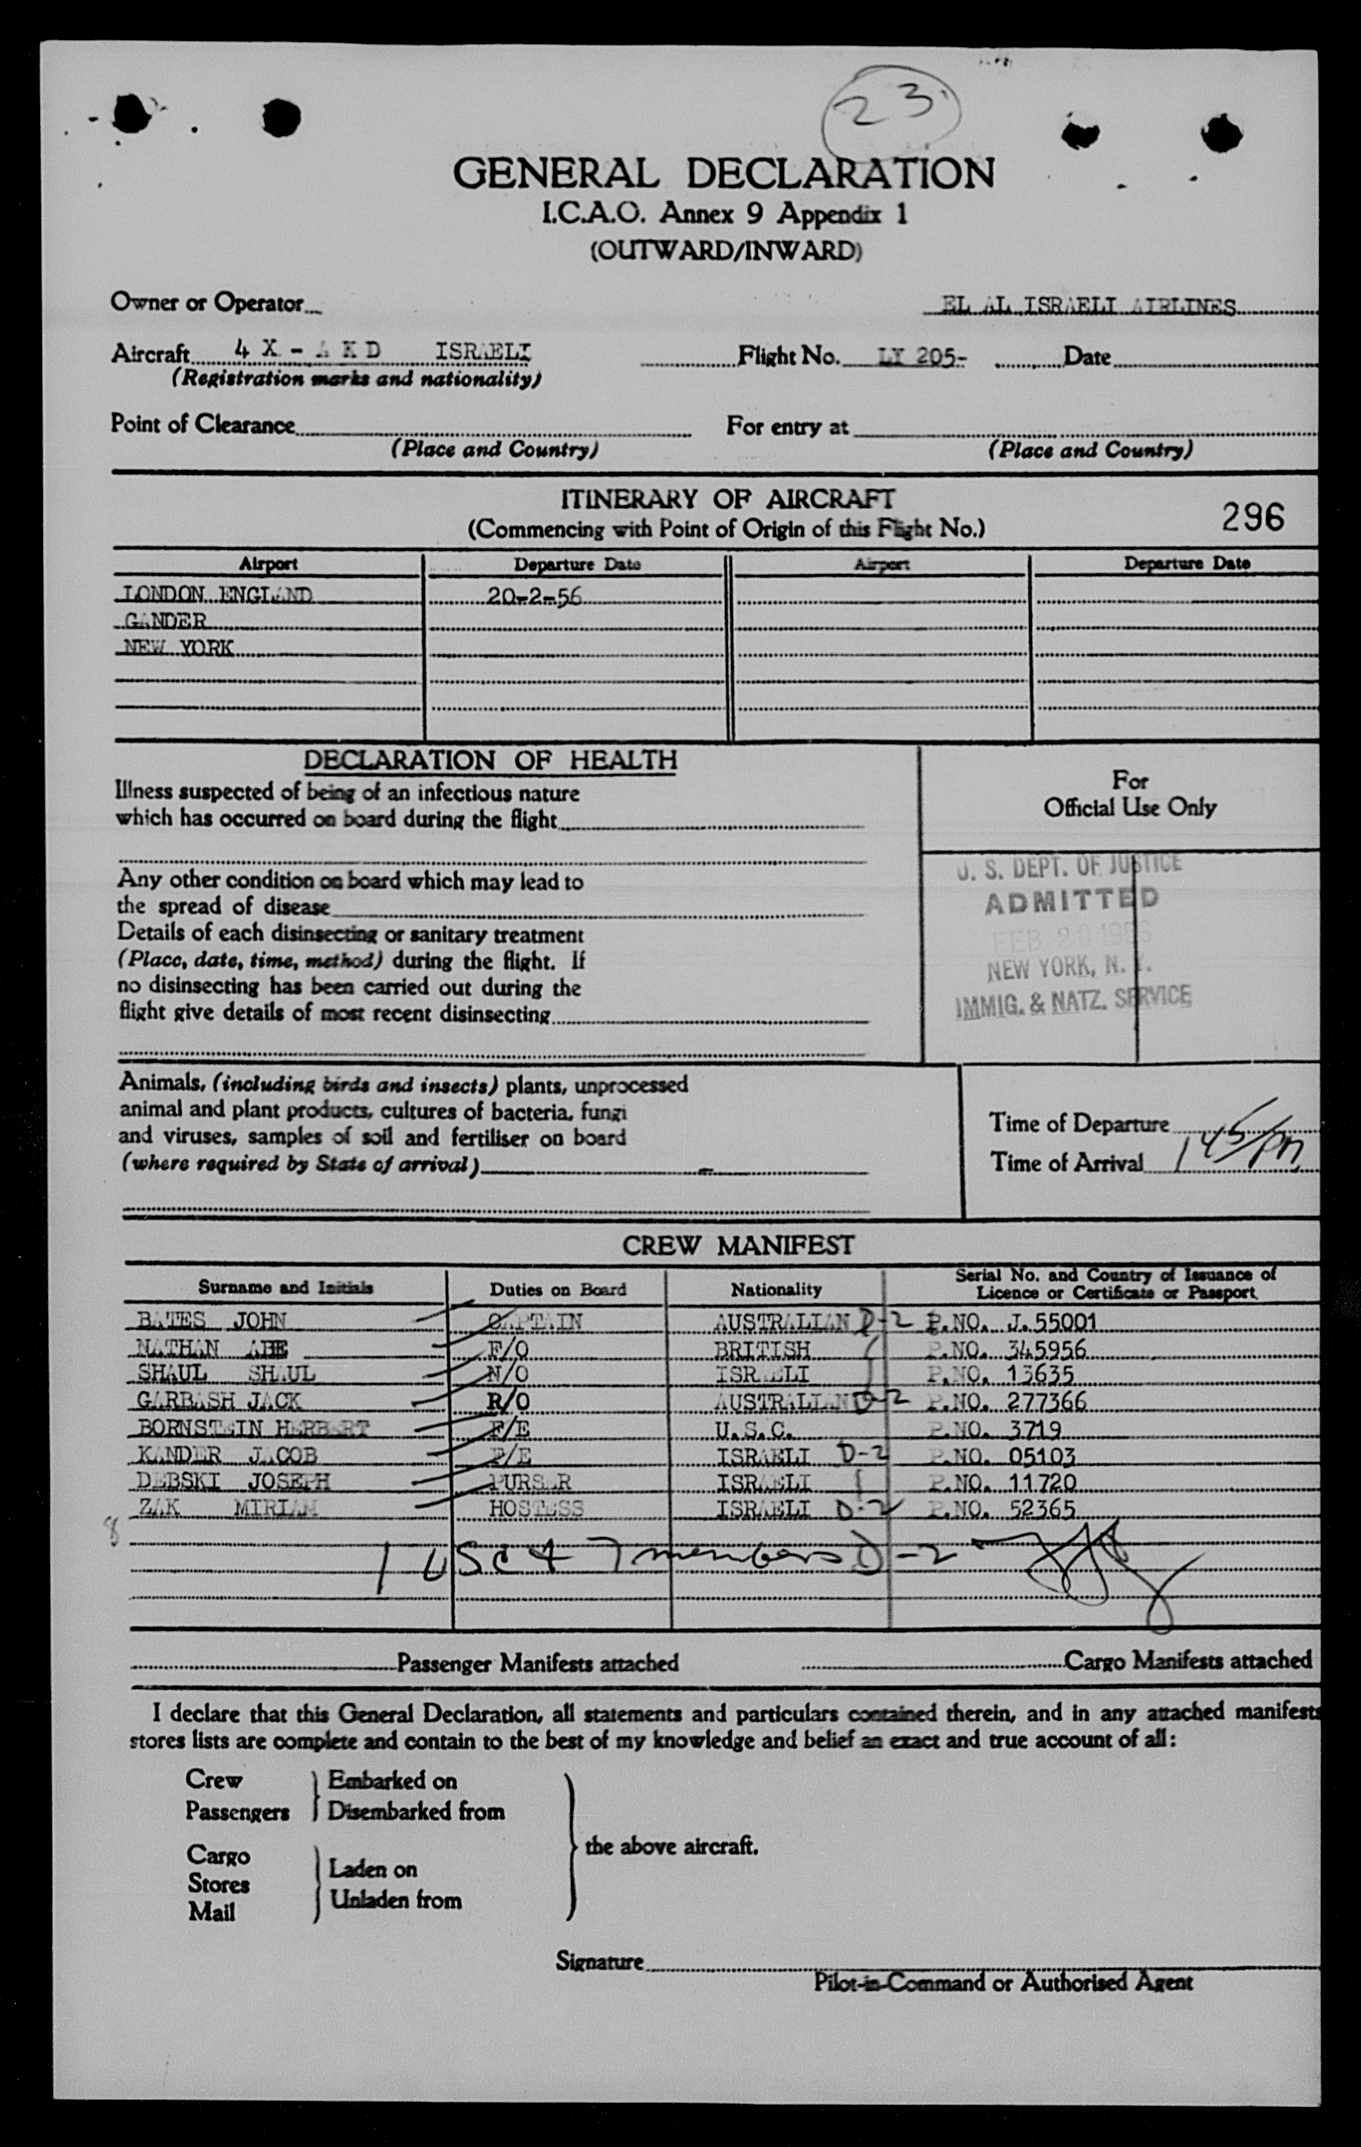 23
GENERAL DECLARATION
I.C.A.O. Annex 9 Appendix 1
(OUTWARD/INWARD)
Owner or Operator EL AL ISRAELI AIRLINES
Aircraft 4 X - A K D ISRAELI Flight No. LY 205- Date
(Registration marks and nationality)
Point of Clearance For entry at
(Place and Country) (Place and Country)
ITINERARY OF AIRCRAFT
296
(Commencing with Point of Origin of this Flight No.)
Airport Departure Date Airport Departure Date
LONDON ENGLAND 20-2-56
GANDER
NEW YORK
DECLARATION OF HEALTH
Illness suspected of being of an infectious nature
which has occurred on board during the flight
Any other condition on board which may lead to
the spread of disease
Details of each disinsecting or sanitary treatment
(Place, date, time, method) during the flight. If
no disinsecting has been carried out during the
flight give details of most recent disinsecting
For
Official Use Only
U. S. DEPT. OF JUSTICE
ADMITTED
FEB 20 1956
NEW YORK, N. Y.
IMMIG. & NATZ. SERVICE
Animals, (including birds and insects) plants, unprocessed
animal and plant products, cultures of bacteria, fungi
and viruses, samples of soil and fertiliser on board
(where required by State of arrival) -
Time of Departure
Time of Arrival 145 pm
CREW MANIFEST
Surname and Initials Duties on Board Nationality Serial No. and Country of Issuance of
Licence or Certificate or Passport.
BATES JOHN CAPTAIN AUSTRALIAN D-2 P.NO. J.55001
NATHAN ABE F/O BRITISH P.NO. 345956
SHAUL SHAUL N/O ISRAELI P.NO. 13635
GARBASH JACK R/O AUSTRALIAN D-2 P.NO. 277366
BORNSTEIN HERBERT F/E U.S.C. P.NO. 3719
KANDER JACOB F/E ISRAELI D-2 P.NO. 05103
DEBSKI JOSEPH PURSER ISRAELI P.NO. 11720
ZAK MIRIAM HOSTESS ISRAELI D-2 P.NO. 52365
8
1 USC & 7 members D-2
Passenger Manifests attached Cargo Manifests attached
I declare that this General Declaration, all statements and particulars contained therein, and in any attached manifests
stores lists are complete and contain to the best of my knowledge and belief an exact and true account of all:
Crew Embarked on
Passengers Disembarked from
the above aircraft.
Cargo
Laden on
Stores
Unladen from
Mail
Signature
Pilot-in-Command or Authorised Agent